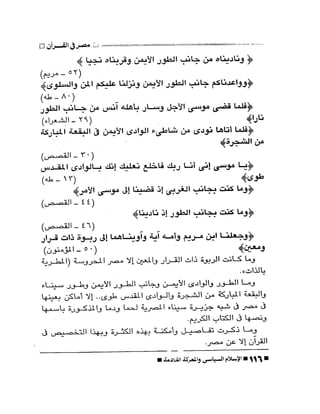 مصر فى القـــرآن
﴿ وناديناه من جانب الطور الأيمن وقربناه نجيا ﴾
(٥٢ – مريم)
﴿وواعدناكم جانب الطور الأيمن ونزلنا عليكم المن والسلوى﴾
(٨٠ – طه)
﴿فلما قضى موسى الأجل وســار بأهله آنس من جــانب الطور
نارا﴾ (٢٩ – الشعراء)
﴿فلما أتاها نودى من شاطىء الوادى الأيمن فى البقعة المباركة
من الشجرة﴾
(٣٠ – القصص)
﴿يــا موسى إنى أنــا ربك فاخلع نعليك إنك بــالوادى المقــدس
طوى﴾ (١٢ – طه)
﴿وما كنت بجانب الغربى إذ قضينا إلى موسى الأمر﴾
(٤٤ – القصص)
﴿وما كنت بجانب الطور إذ نادينا﴾
(٤٦ – القصص)
﴿وجعلنــا ابن مــريم وأمــه آية وآوينــاهما إلى ربــوة ذات قــرار
ومعين﴾ (٥٠ – المؤمنون)
وما كــانت الربوة ذات القــرار والمعين إلا مصر المحروسة (المطـرية
بالذات).
ومــا الطــور والوادى الأيمــن وجانب الطــور الأيمن وطـور سينــاء
والبقعة المباركة من الشجرة والـوادى المقدس طوى.. إلا أماكن بعينها
فى مصر فى شبه جزيـرة سيناء المصرية لحما ودما والمذكـورة باسمها
ونصها فى الكتاب الكريم.
ومــا ذكـرت تفــاصيــل وأمكنــة بهذه الكثـرة وبهذا التخصيص فى
القرآن إلا عن مصر.
١١٦ الإسلام السياسى والمعركة القادمة